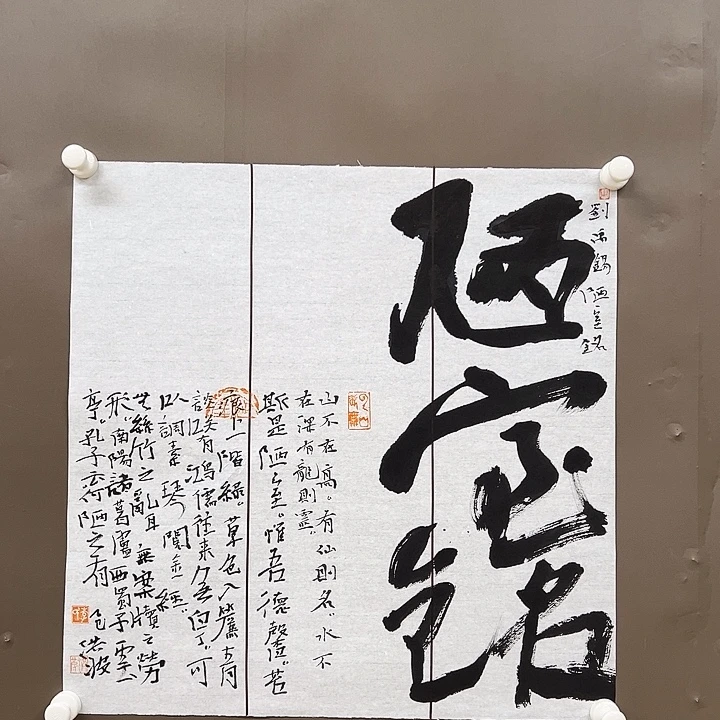 劉禹錫陋室銘
陋室銘
山不在高有仙則名水不
在深有龍則靈
斯是陋室惟吾德馨苔
痕上階綠草色入簾青
談笑有鴻儒往來無白丁可
以調素琴閱金經
無絲竹之亂耳無案牘之勞
形南陽諸葛廬西蜀子雲
亭孔子云何陋之有
洪波